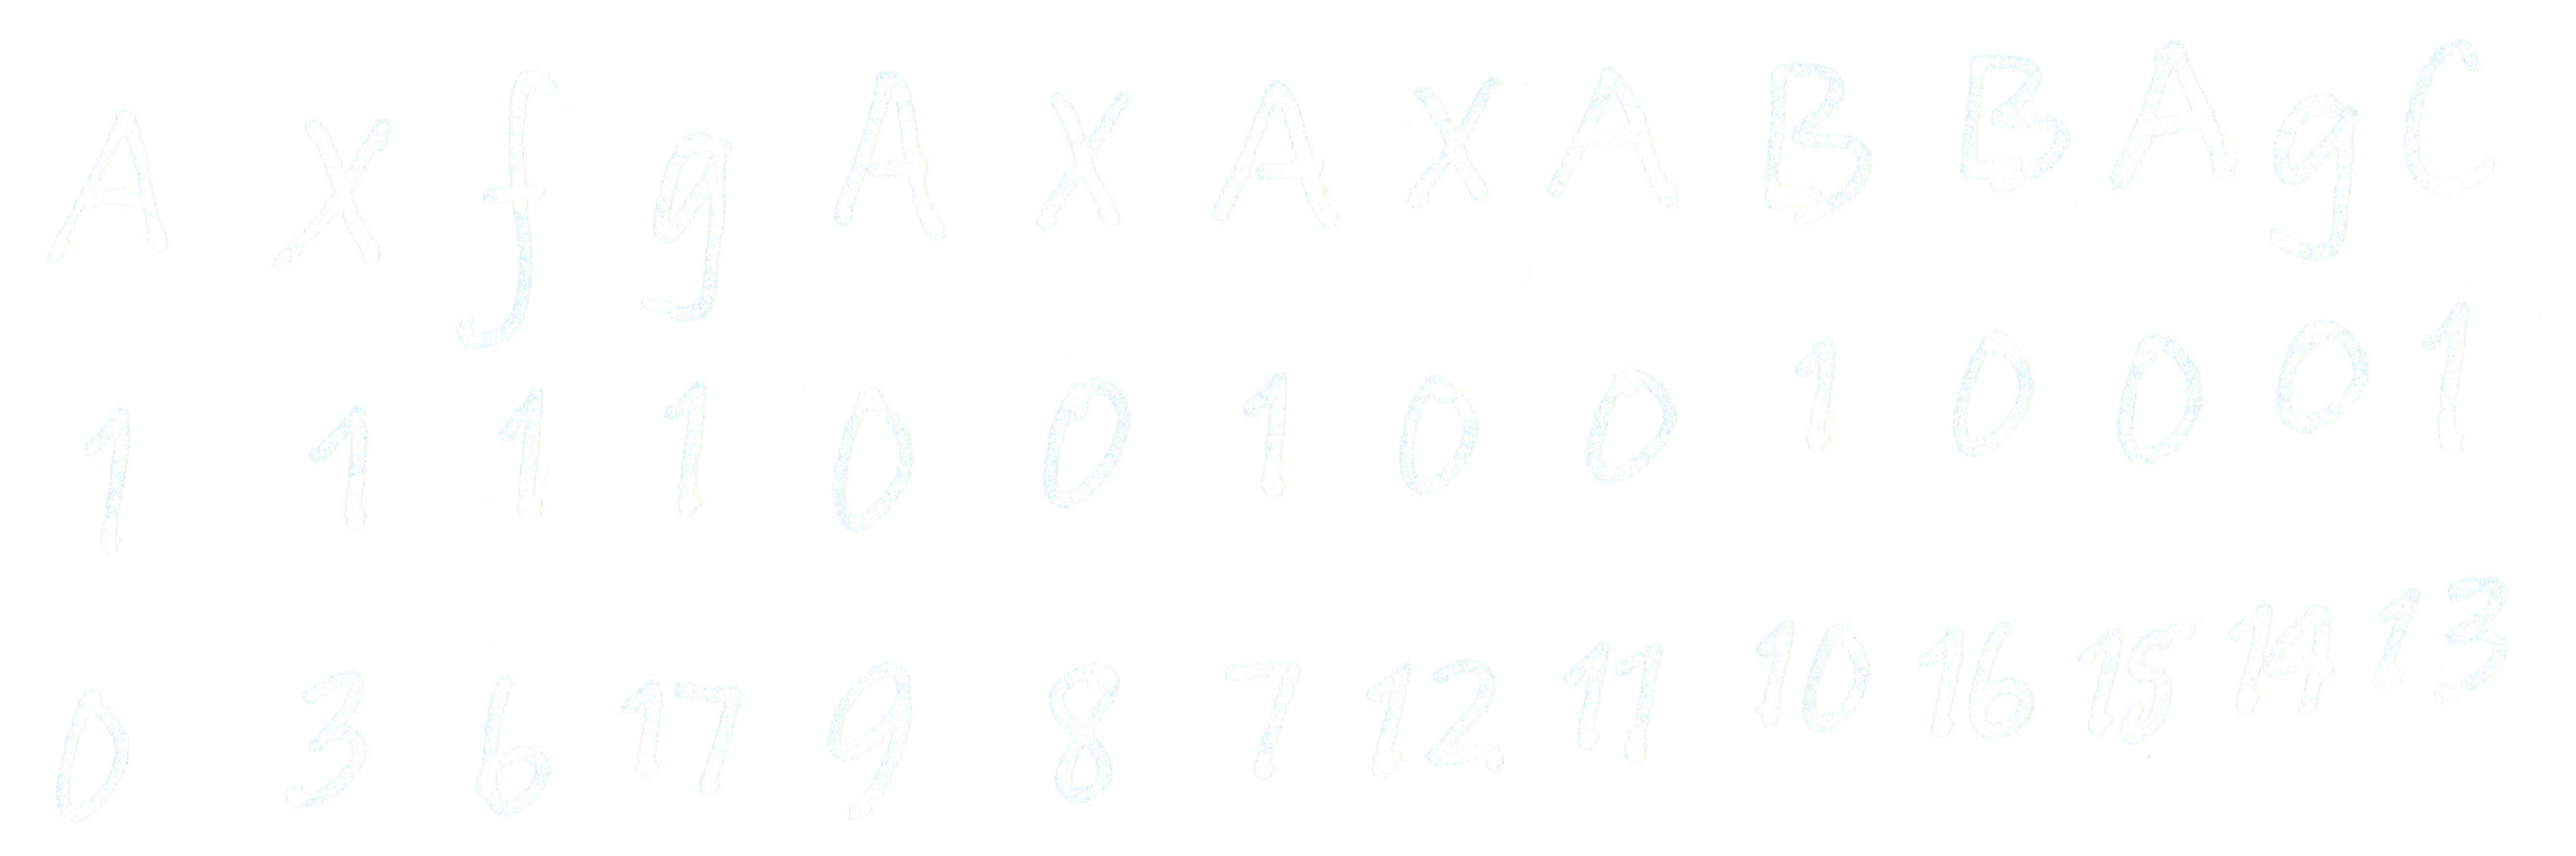 A X f g A X A X A B B A g C
1 1 1 1 0 0 1 0 0 1 0 0 0 1
0 3 6 17 9 8 7 12 11 10 16 15 14 13